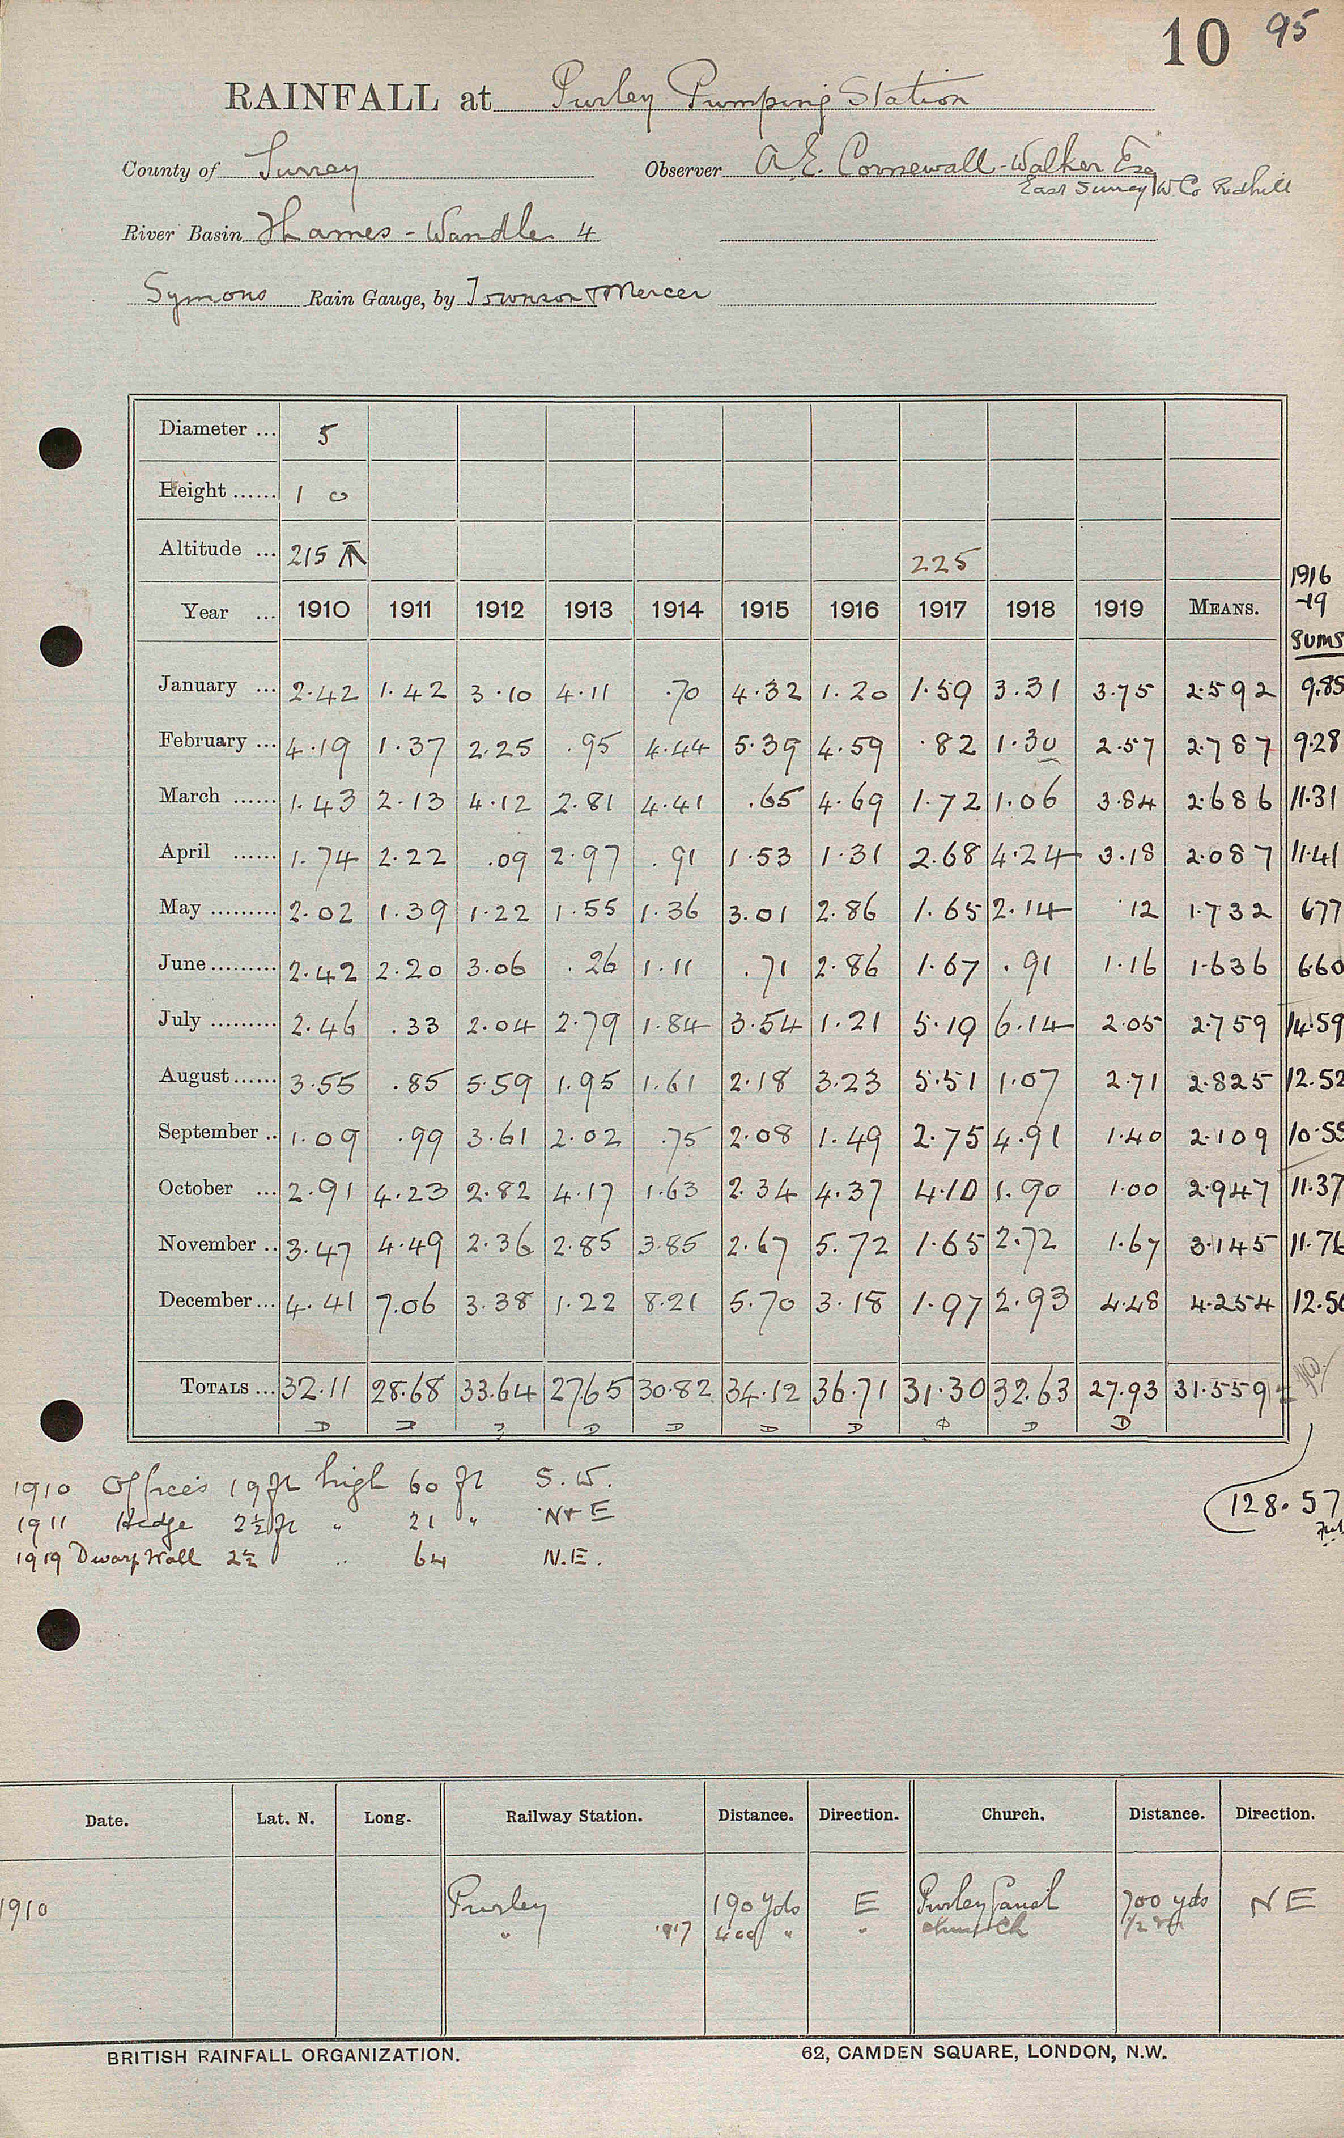 10 95
RAINFALL at Purley Pumping Station
County of Surrey Observer A.E. Cornewall-Walker Esq
East Surrey W Co Redhill
River Basin Thames - Wandle 4
Symons Rain Gauge, by Townson & Mercer
Diameter ... 5
Height ...... 1 0
Altitude ... 215 225
1916
-19
Sums
Year ... 1910 1911 1912 1913 1914 1915 1916 1917 1918 1919 MEANS.
January ... 2.42 1.42 3.10 4.11 .70 4.32 1.20 1.59 3.31 3.75 2.592 9.85
February ... 4.19 1.37 2.25 .95 4.44 5.39 4.59 .82 1.30 2.57 2.787 9.28
March ...... 1.43 2.13 4.12 2.81 4.41 .65 4.69 1.72 1.06 3.84 2.686 11.31
April ...... 1.74 2.22 .09 2.97 .91 1.53 1.31 2.68 4.24 3.18 2.087 11.41
May ......... 2.02 1.39 1.22 1.55 1.36 3.01 2.86 1.65 2.14 .12 1.732 6.77
June ......... 2.42 2.20 3.06 .26 1.11 .71 2.86 1.67 .91 1.16 1.636 6.60
July ......... 2.46 .33 2.04 2.79 1.84 3.54 1.21 5.19 6.14 2.05 2.759 14.59
August ...... 3.55 .85 5.59 1.95 1.61 2.18 3.23 5.51 1.07 2.71 2.825 12.52
September .. 1.09 .99 3.61 2.02 .75 2.08 1.49 2.75 4.91 1.40 2.109 10.55
October ... 2.91 4.23 2.82 4.17 1.63 2.34 4.37 4.10 1.90 1.00 2.947 11.37
November .. 3.47 4.49 2.36 2.85 3.85 2.67 5.72 1.65 2.72 1.67 3.145 11.76
December ... 4.41 7.06 3.38 1.22 8.21 5.70 3.18 1.97 2.93 4.48 4.254 12.56
TOTALS ... 32.11 28.68 33.64 27.65 30.82 34.12 36.71 31.30 32.63 27.93 31.559
1910 Offices 19 ft high 60 ft S.W.
1911 Hedge 2½ ft " 21 " N & E
1919 Dwarf Wall 2½ " 64 N.E.
128.57
Date. Lat. N. Long. Railway Station. Distance. Direction. Church. Distance. Direction.
1910 Purley 190 yds E Purley 700 yds NE
" 1917 400 " " church 1/2
BRITISH RAINFALL ORGANIZATION. 62, CAMDEN SQUARE, LONDON, N.W.